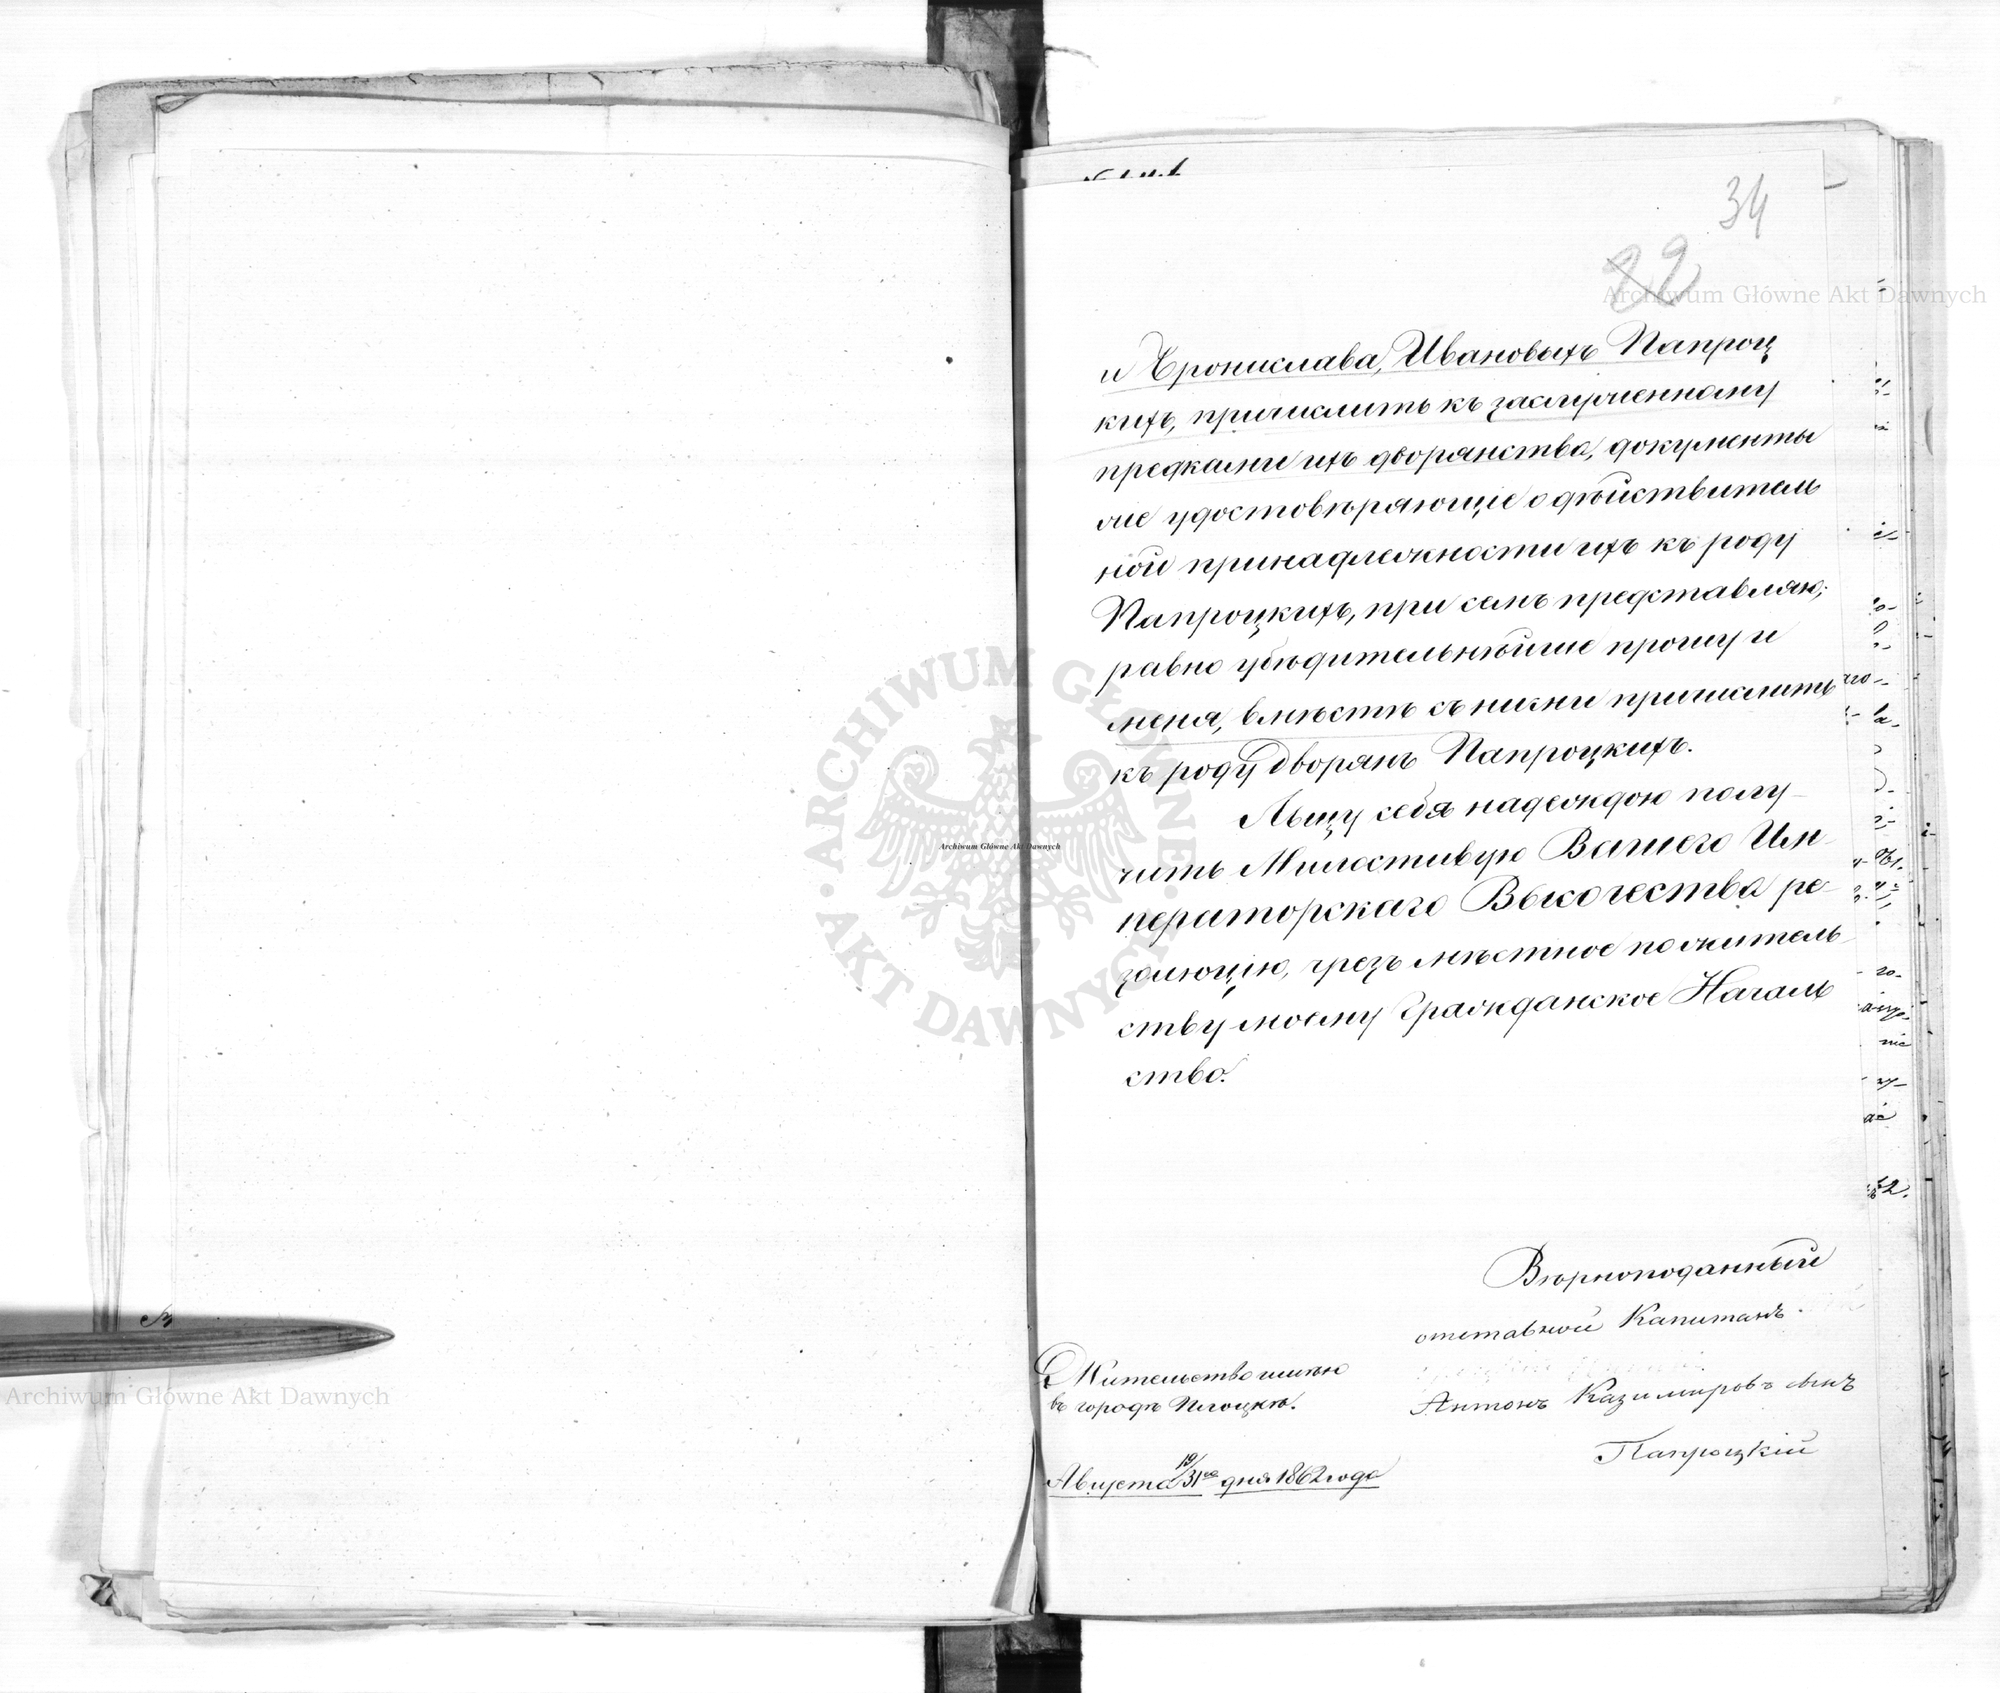 34
22
и Бронислава, Ивановыхъ Папроц
кихъ, причислить къ заслуженному
предками ихъ дворянства, документы
же удостовѣряющіе о дѣйствитель
ной принадлежности ихъ къ роду
Папроцкихъ, при семъ представляю;
равно убѣдительнѣйше прошу и
меня, вмѣстѣ съ ними причислить
къ роду Дворянъ Папроцкихъ.
Льщу себя надеждою полу-
чить Милостивую Вашего Им-
ператорскаго Высочества ре-
золюцію, чрезъ мѣстное по житель
ству моему Гражданское Началь
ство.
Вѣрноподанный
отставной Капитанъ
Жительство имѣю
въ городѣ Плоцкѣ.
Антонъ Казимировъ сынъ
Папроцкій
Августа 19/31го дня 1862 года
Archiwum Główne Akt Dawnych
Archiwum Główne Akt Dawnych
Archiwum Główne Akt Dawnych
ARCHIWUM GŁÓWNE
AKT DAWNYCH